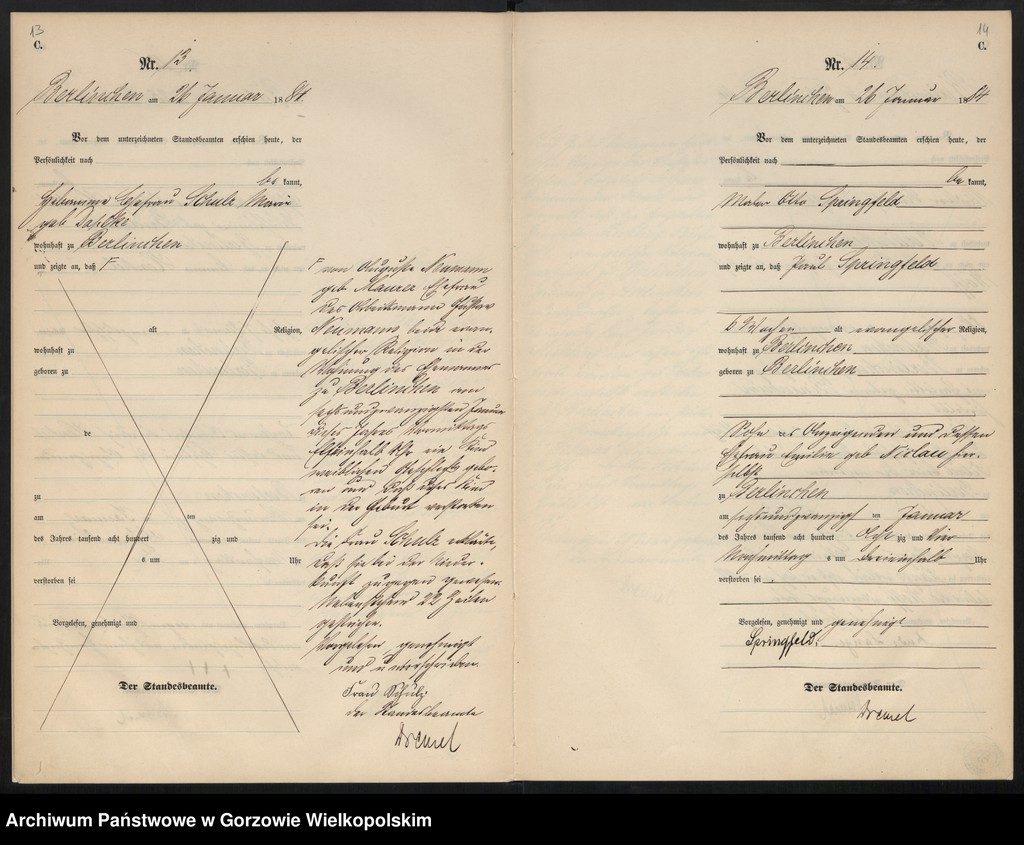 13
C.
Nr. 13
Berlinchen am 26 Januar 1884.
Vor dem unterzeichneten Standesbeamten erschien heute, der
Persönlichkeit nach
be kannt,
Hebamme Ehefrau Schulz Marie
geb
wohnhaft zu Berlinchen
und zeigte an, daß F
alt Religion,
wohnhaft zu
geboren zu
de
zu
am ten
des Jahres tausend acht hundert zig und
s um Uhr
verstorben sei
Vorgelesen, genehmigt und
Der Standesbeamte.
F von Auguste Neumann
geb Maurer Ehefrau
des Arbeitsmann Gustav
Neumann beide evan-
gelischer Religion in der
Wohnung des Ehemannes
zu Berlinchen am
sechsundzwanzigsten Januar
dieses Jahres Vormittags
Uhr ein Kind
weiblichen Geschlechts gebo-
ren und daß dieses Kind
in der Geburt verstorben
sei.
Die Frau Schulz erklärte,
daß sie bei der Nieder-
kunft zugegen gewesen.
Nebenstehend 22 Zeilen
gestrichen.
Vorgelesen, genehmigt
und unterschrieben.
Frau Schulz.
der Standesbeamte
14
C.
Nr. 14
Berlinchen am 26 Januar 1884
Vor dem unterzeichneten Standesbeamten erschien heute, der
Persönlichkeit nach
be kannt,
Maler Otto Springfeld
wohnhaft zu Berlinchen
und zeigte an, daß Paul Springfeld
6 Wochen alt evangelischer Religion,
wohnhaft zu Berlinchen
geboren zu Berlinchen
Sohn des Anzeigenden und dessen
Ehefrau Emilie geb Niclau hier-
selbst
zu Berlinchen
am sechsundzwanzigst ten Januar
des Jahres tausend acht hundert acht zig und vier
Nachmittag s um dreieinhalb Uhr
verstorben sei.
Vorgelesen, genehmigt und genehmigt
Springfeld.
Der Standesbeamte.
Archiwum Państwowe w Gorzowie Wielkopolskim